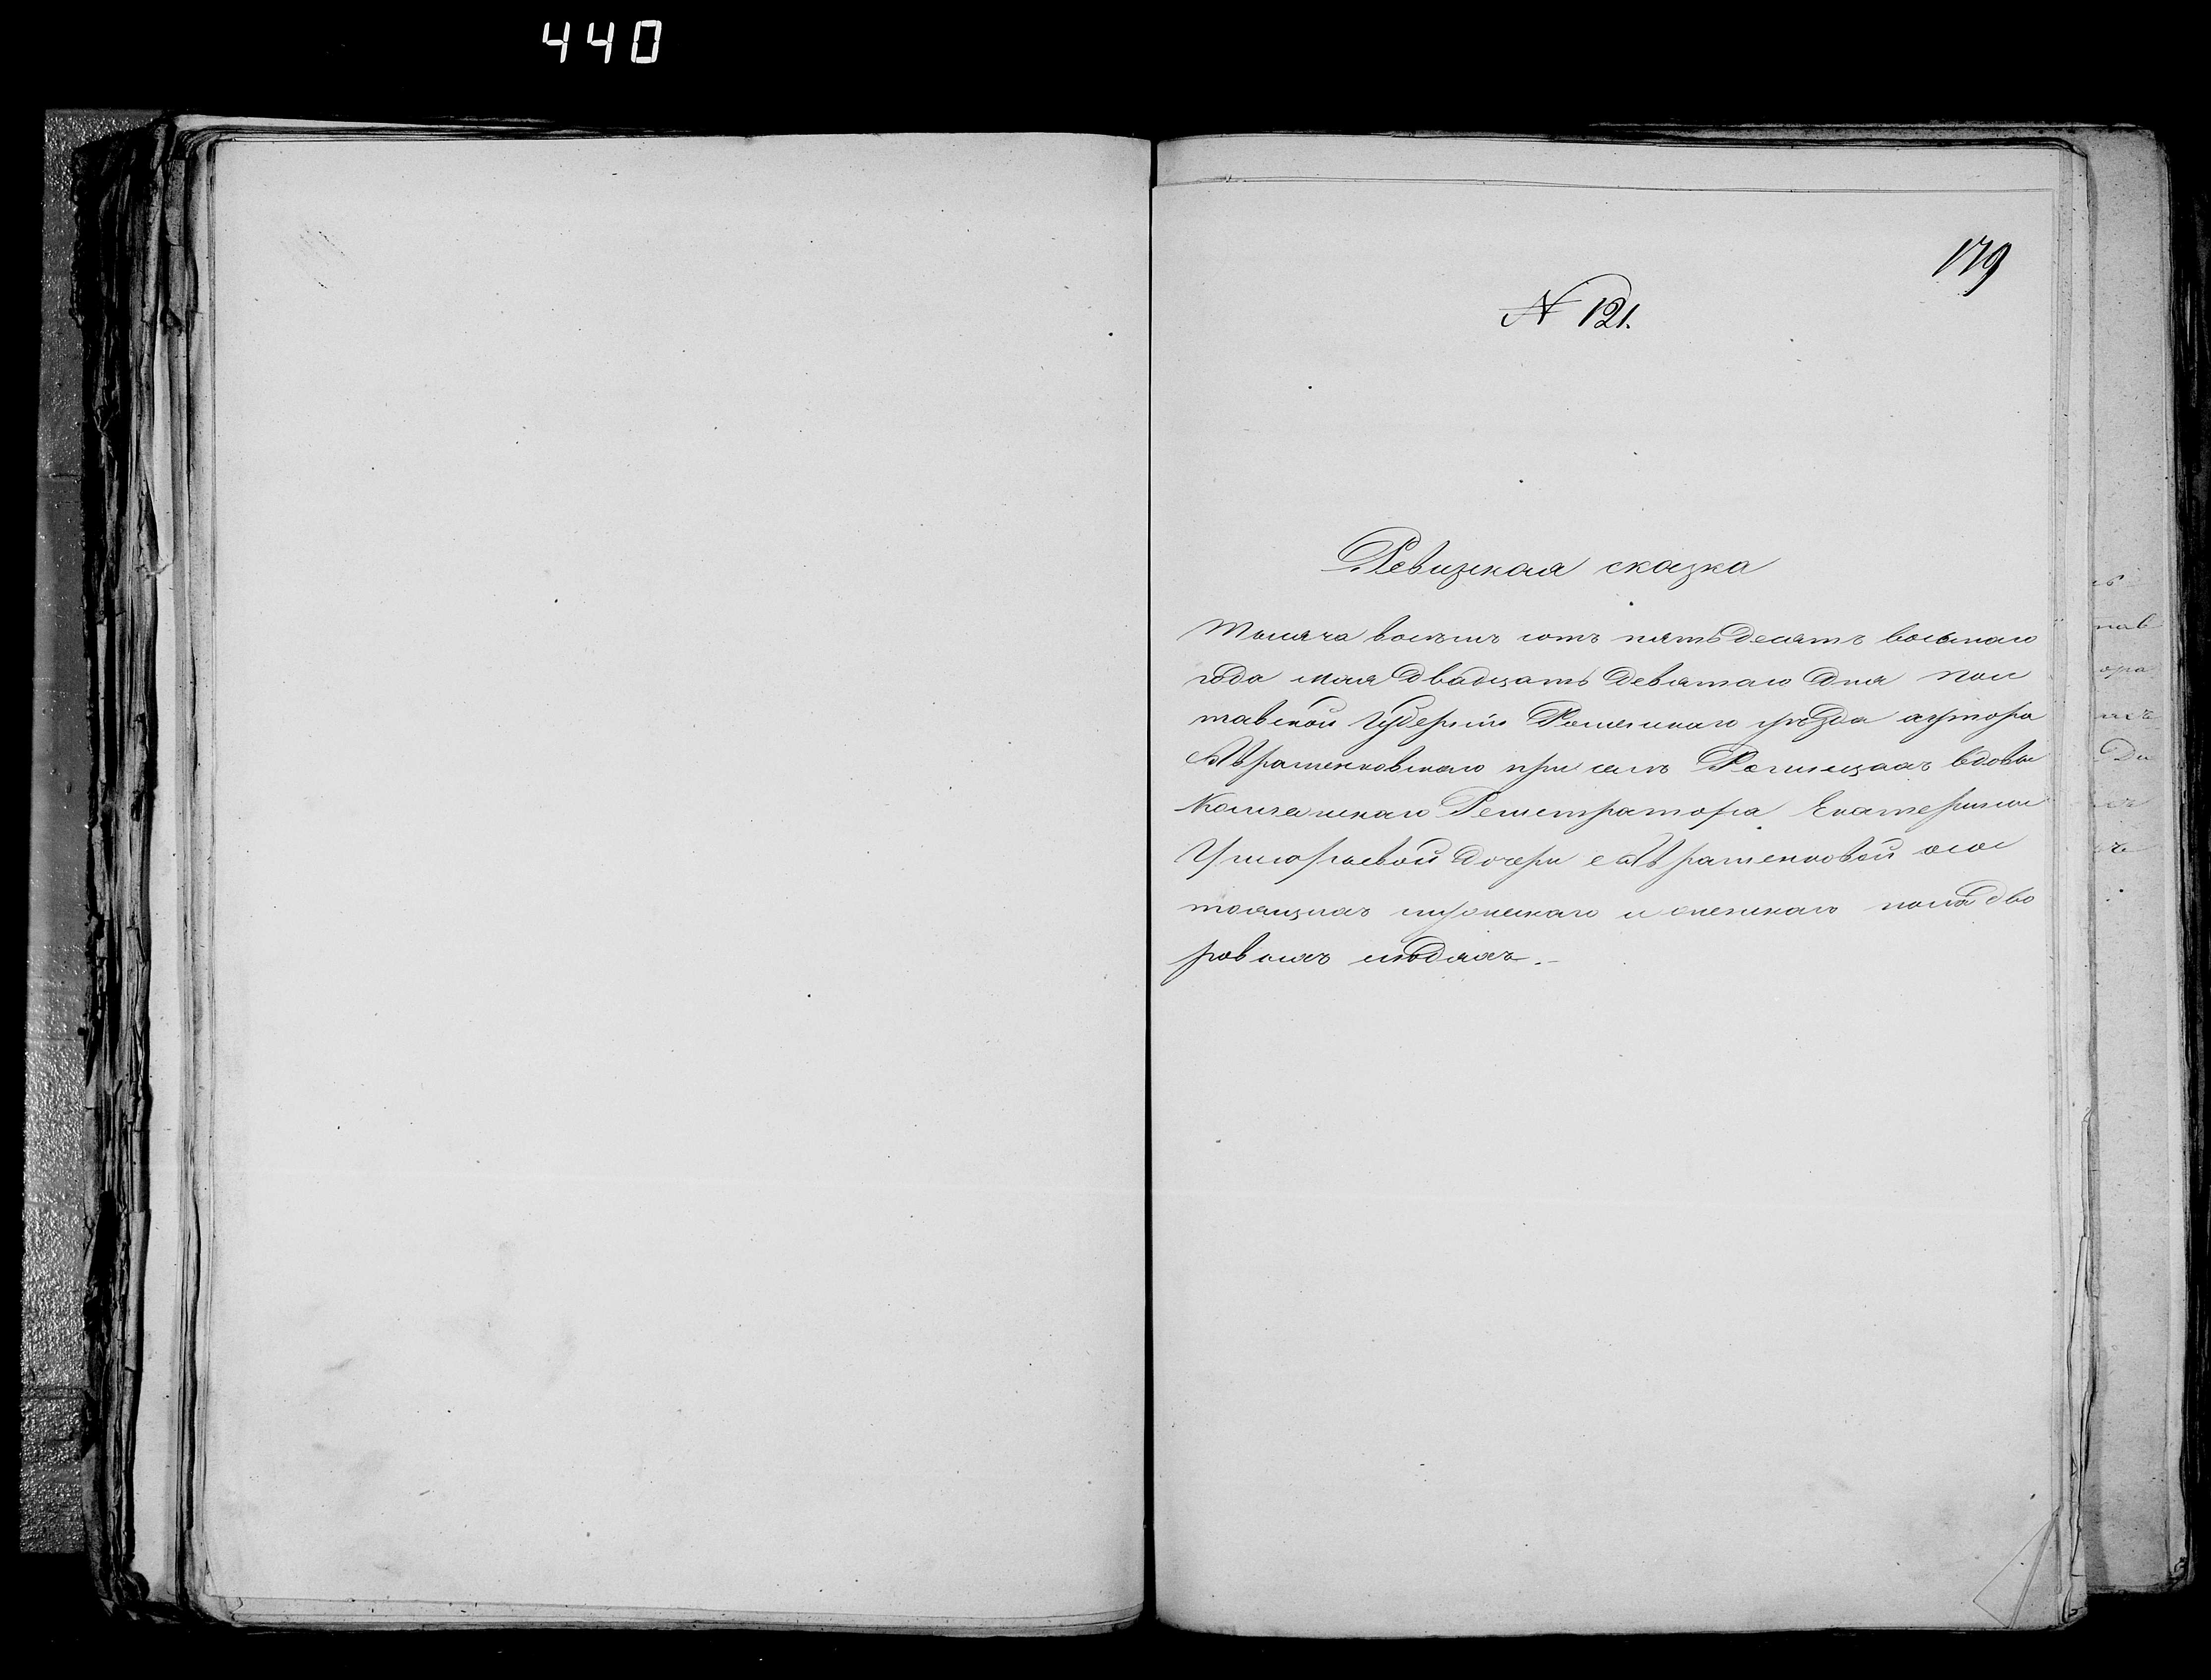 440
179
N 121.
Ревизская сказка
Тысяча восемь сотъ пятьдесятъ восьмаго
года мая двадцать девятаго дня Пол
тавской Губерніи Роменскаго уѣзда хутора
Авраменковскаго при селѣ Рогинцахъ вдовы
Коллежскаго Регистратора Екатерины
Григорьевой дочери Авраменковой о сос
тоящихъ мужескаго и женскаго пола дво
ровыхъ людяхъ.